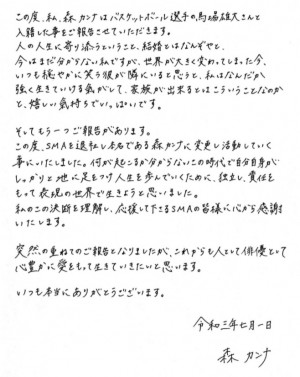 この度、私、森カンナはバスケットボール選手の馬場雄大さんと
入籍した事をご報告させていただきます。
人の人生に寄り添うということ、結婚とはなんぞやと、
今はまだ分からない私ですが、世界が大きく変わってしまった今、
いつも穏やかに笑う彼が隣にいると思うと、私はなんだか
強く生きていける気がして、家族が出来るとはこういうことなのか
と、嬉しい気持ちでいっぱいです。
そしてもう一つご報告があります。
この度、SMAを退社し本名である森カンナに変更し活動していく
事にいたしました。何が起こるか分からないこの時代で自分自身が
しっかりと地に足をつけ人生を歩んでいくために、独立し、責任を
もって表現の世界で生きようと思いました。
私のこの決断を理解し、応援して下さるSMAの皆様に心から感謝
いたします。
突然の重ねてのご報告となりましたが、これからも人として俳優として
心豊かに愛をもって生きていきたいと思います。
いつも本当にありがとうございます。
令和三年七月一日
森 カンナ